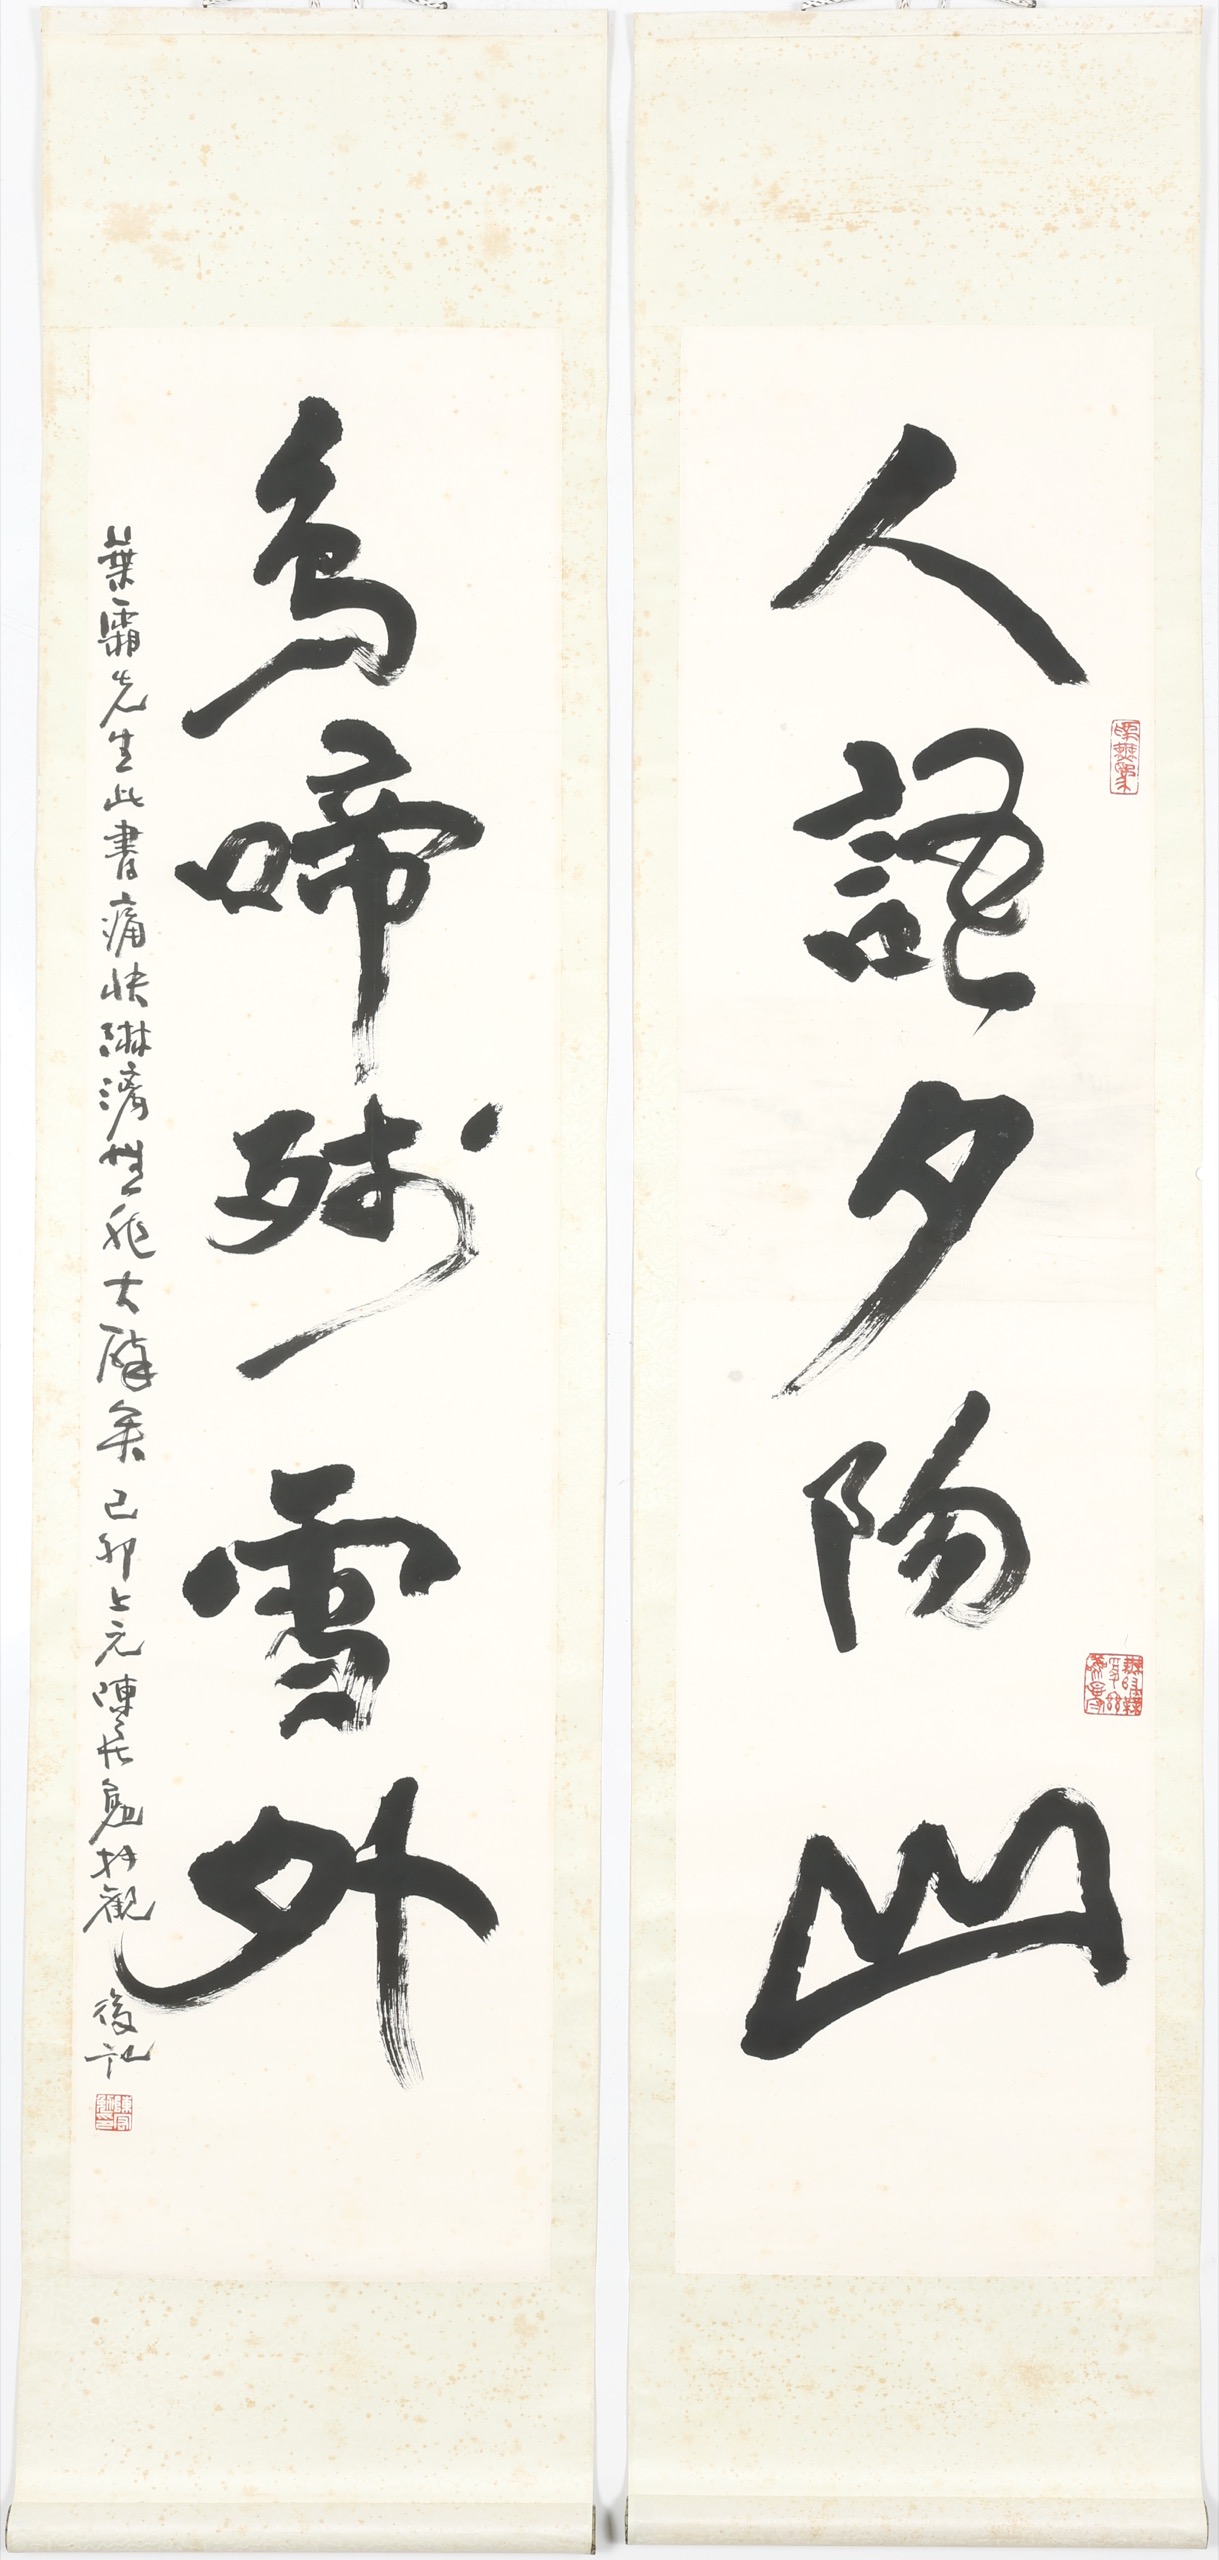 人語夕陽山
鳥啼殘雪外
葉霜先生此書痛快淋漓大醉矣 己卯上元陳勉拜觀 後記